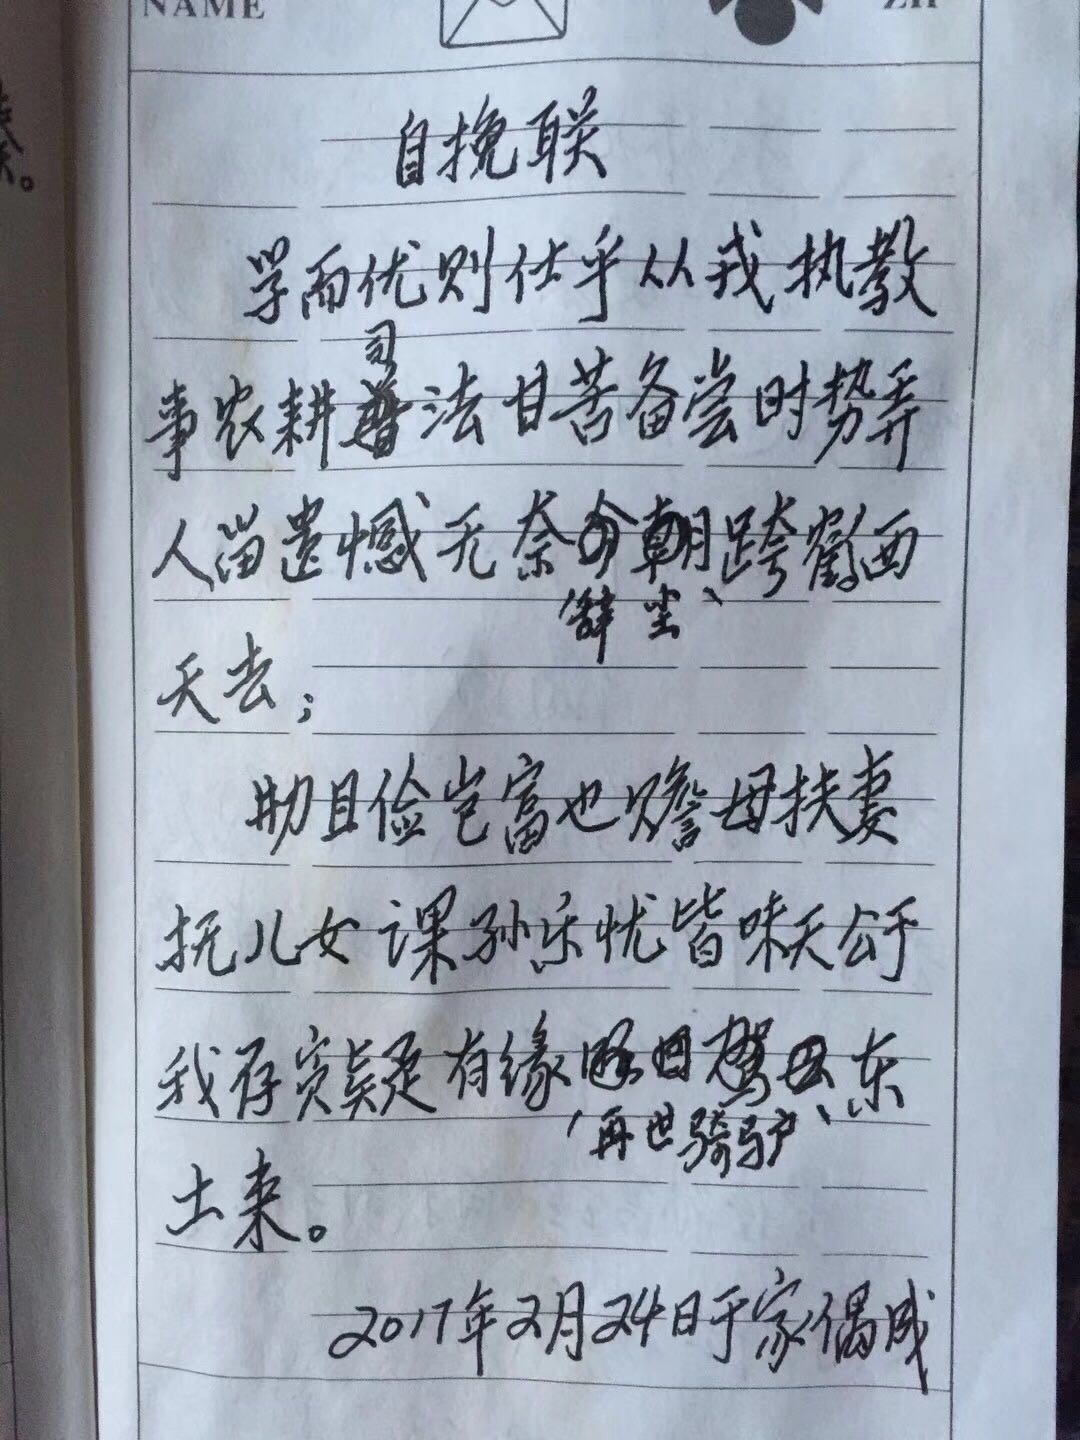 NAME
自挽联
学而优则仕乎从戎执教
司
事农耕普法甘苦备尝时势弄
人留遗憾无奈今朝跨鹤西
辞尘
天去；
勤且俭岂富也赡母扶妻
抚儿女课孙乐忧皆味天公于
我存实疑有缘 东
再世骑驴
土来。
2017年2月24日于家偶成